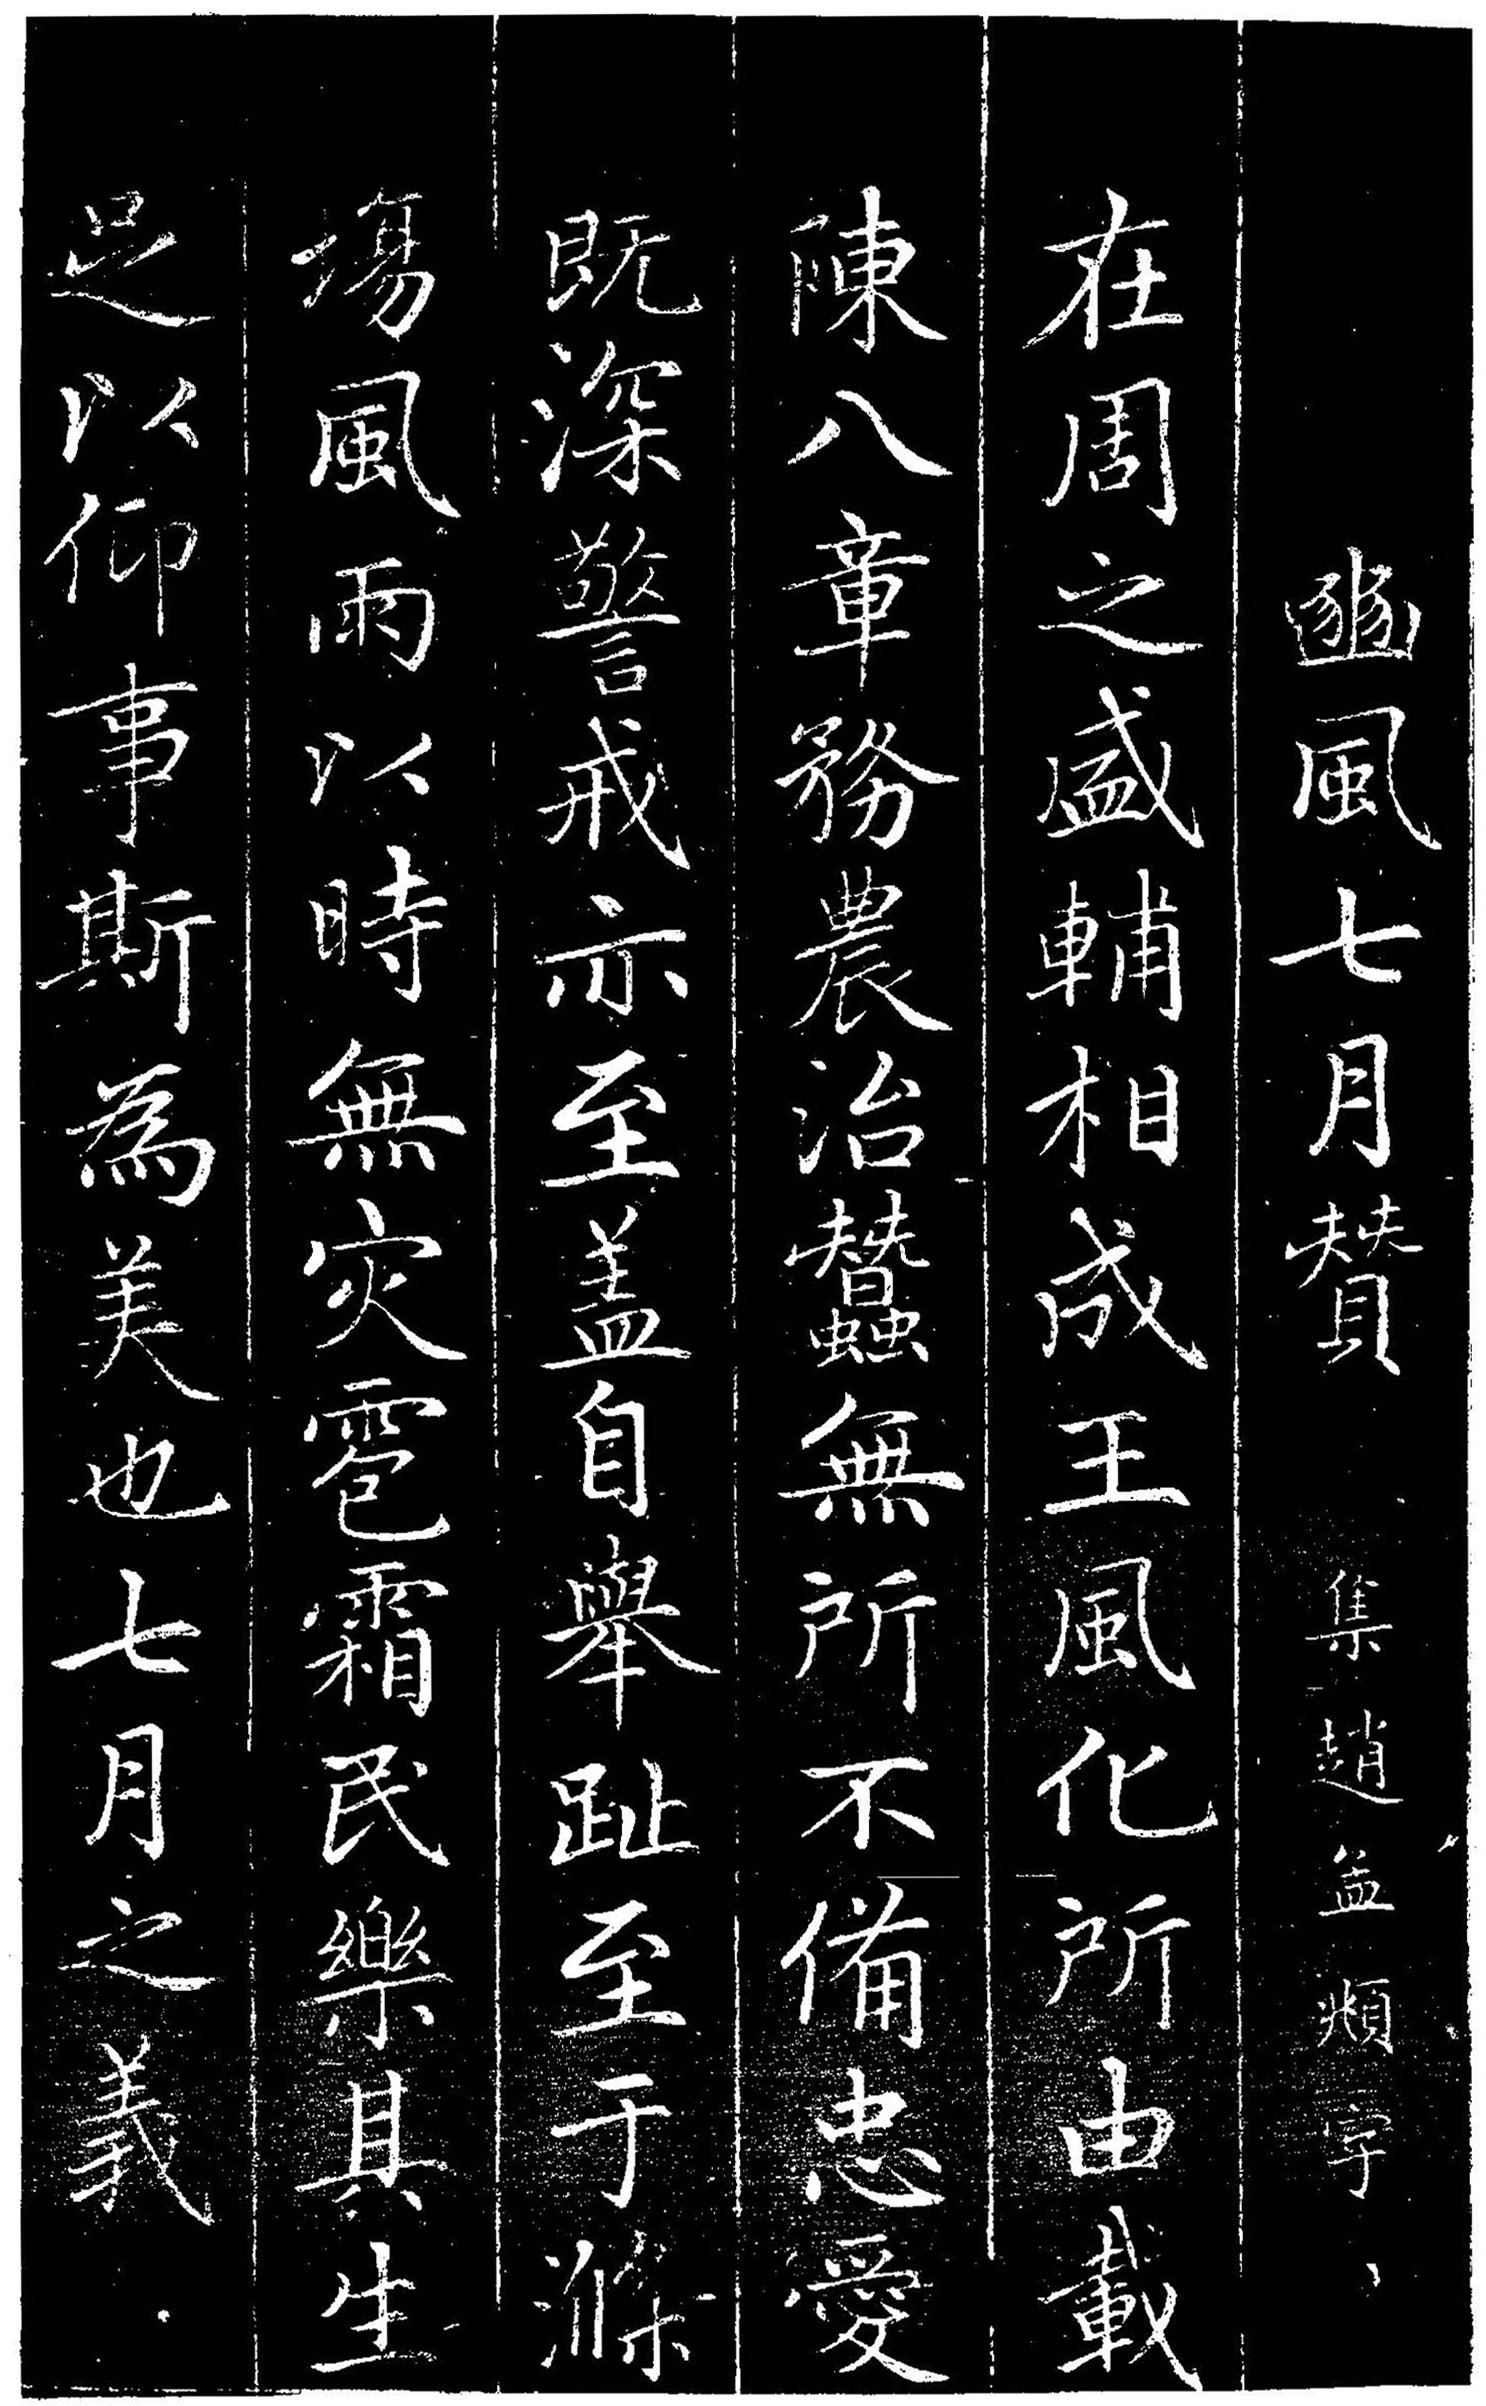 豳風七月賛 集趙孟頫字
在周之盛輔相成王風化所由載
陳八章務農治蠶無所不備忠愛
既深警戒亦至盖自舉趾至于滌
場風雨以時無灾雹霜民樂其生
足以仰事斯為美也七月之義